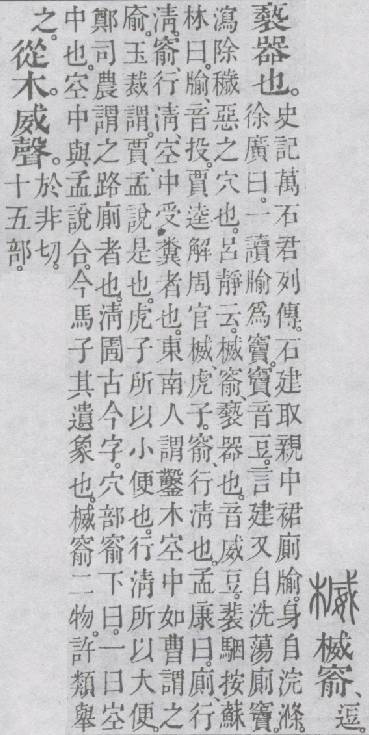 楲 楲窬、逗。
褻器也。史記萬石君列傳。石建取親中裙廁牏。身自浣滌。
徐廣曰。一讀牏爲竇。竇音豆。言建又自洗蕩廁竇。
瀉除穢惡之穴也。呂靜云。楲窬、褻器也。音威豆。裴駰按蘇
林曰。牏、音投。賈逵解周官楲、虎子。窬、行清也。孟康曰。廁、行
清。窬行清、空中受糞者也。東南人謂鑿木空中如曹謂之
牏。玉裁謂。賈孟說是也。虎子所以小便也。行清所以大便。
鄭司農謂之路廁者也。清圊古今字。穴部窬下曰。一曰空
中也。空中與孟說合。今馬子其遺象也。楲窬二物。許類舉
之。從木威聲。於非切。
十五部。